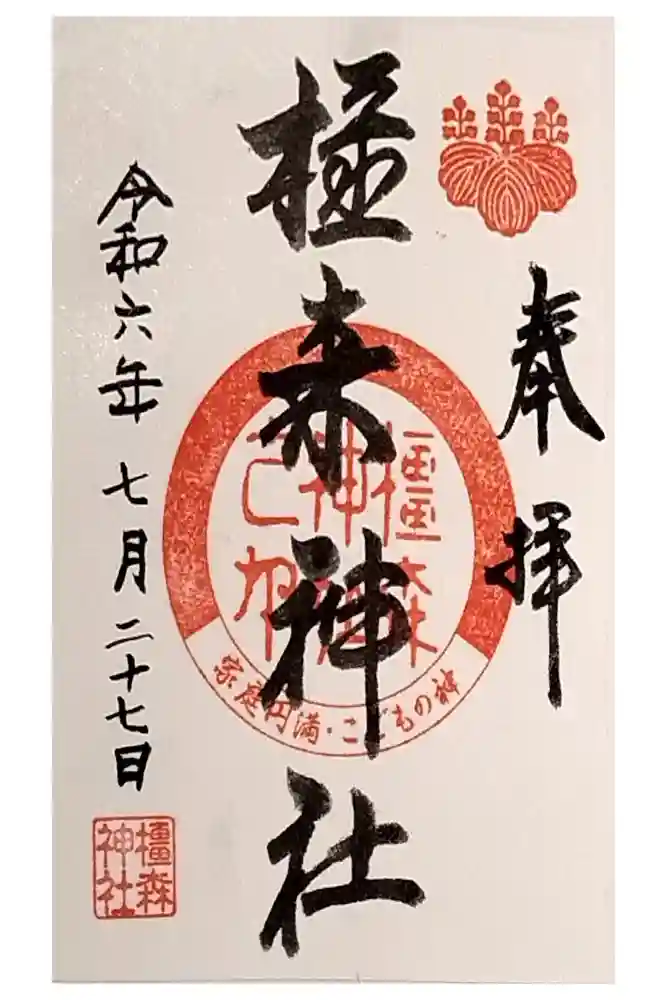 奉拝
橿森神社
橿森
神社
之印
家庭円満・こどもの神
令和六年 七月 二十七日
橿森
神社